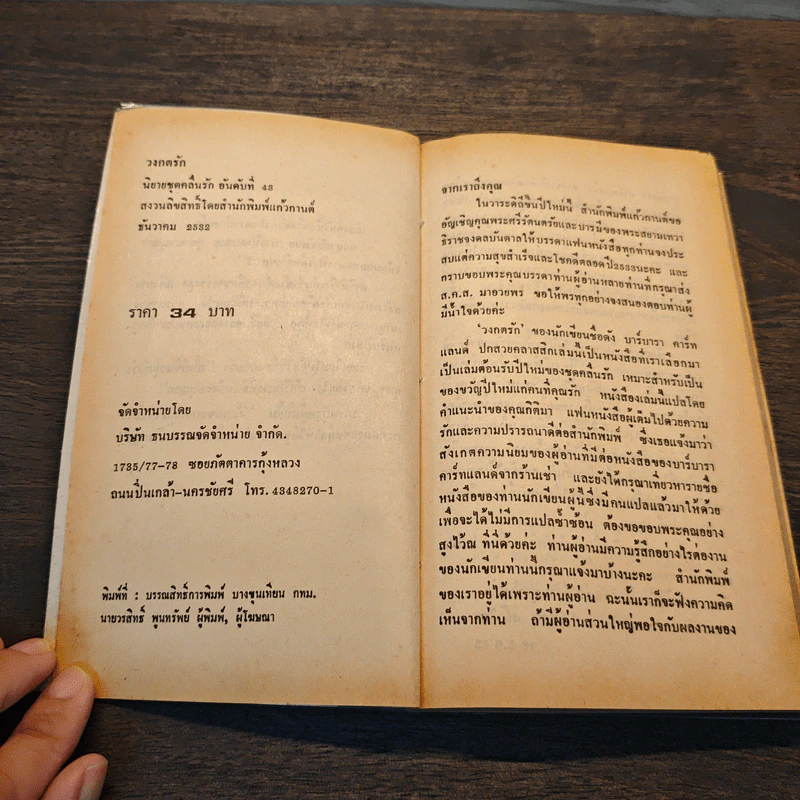 วงกตรัก
นิยายชุดคลื่นรัก อันดับที่ 43
สงวนลิขสิทธิ์โดยสำนักพิมพ์แก้วกานต์
ธันวาคม 2532
ราคา 34 บาท
จัดจำหน่ายโดย
บริษัท ธนบรรณจัดจำหน่าย จำกัด.
1735/77-78 ซอยภัตตาคารกุ้งหลวง
ถนนปิ่นเกล้า-นครชัยศรี โทร. 4348270-1
พิมพ์ที่ : บรรณสิทธิ์การพิมพ์ บางขุนเทียน กทม.
นายวรสิทธิ์ พูนทรัพย์ ผู้พิมพ์, ผู้โฆษณา
จากเราถึงคุณ
ในวาระดิถีขึ้นปีใหม่นี้ สำนักพิมพ์แก้วกานต์ขอ
อัญเชิญคุณพระศรีรัตนตรัยและบารมีของพระสยามเทวา
ธิราชจงดลบันดาลให้บรรดาแฟนหนังสือทุกท่านจงประ
สบแต่ความสุขสำเร็จและโชคดีตลอดปี2533นะคะ และ
กราบขอบพระคุณบรรดาท่านผู้อ่านหลายท่านที่กรุณาส่ง
ส.ค.ส. มาอวยพร ขอให้พรทุกอย่างจงสนองตอบท่านผู้
มีน้ำใจด้วยค่ะ
'วงกตรัก' ของนักเขียนชื่อดัง บาร์บารา คาร์ท
แลนด์ ปกสวยคลาสสิกเล่มนี้เป็นหนังสือที่เราเลือกมา
เป็นเล่มต้อนรับปีใหม่ของชุดคลื่นรัก เหมาะสำหรับเป็น
ของขวัญปีใหม่แก่คนที่คุณรัก หนังสือเล่มนี้แปลโดย
คำแนะนำของคุณกิติมา แฟนหนังสือผู้เต็มไปด้วยความ
รักและความปรารถนาดีต่อสำนักพิมพ์ ซึ่งเธอแจ้งมาว่า
สังเกตความนิยมของผู้อ่านที่มีต่อหนังสือของบาร์บารา
คาร์ทแลนด์จากร้านเช่า และยังได้กรุณาเที่ยวหารายชื่อ
หนังสือของท่านนักเขียนผู้นี้ซึ่งมีคนแปลแล้วมาให้ด้วย
เพื่อจะได้ไม่มีการแปลซ้ำซ้อน ต้องขอขอบพระคุณอย่าง
สูงไว้ณ ที่นี่ด้วยค่ะ ท่านผู้อ่านมีความรู้สึกอย่างไรต่องาน
ของนักเขียนท่านนี้กรุณาแจ้งมาบ้างนะคะ สำนักพิมพ์
ของเราอยู่ได้เพราะท่านผู้อ่าน ฉะนั้นเราก็จะฟังความคิด
เห็นจากท่าน ถ้ามีผู้อ่านส่วนใหญ่พอใจกับผลงานของ